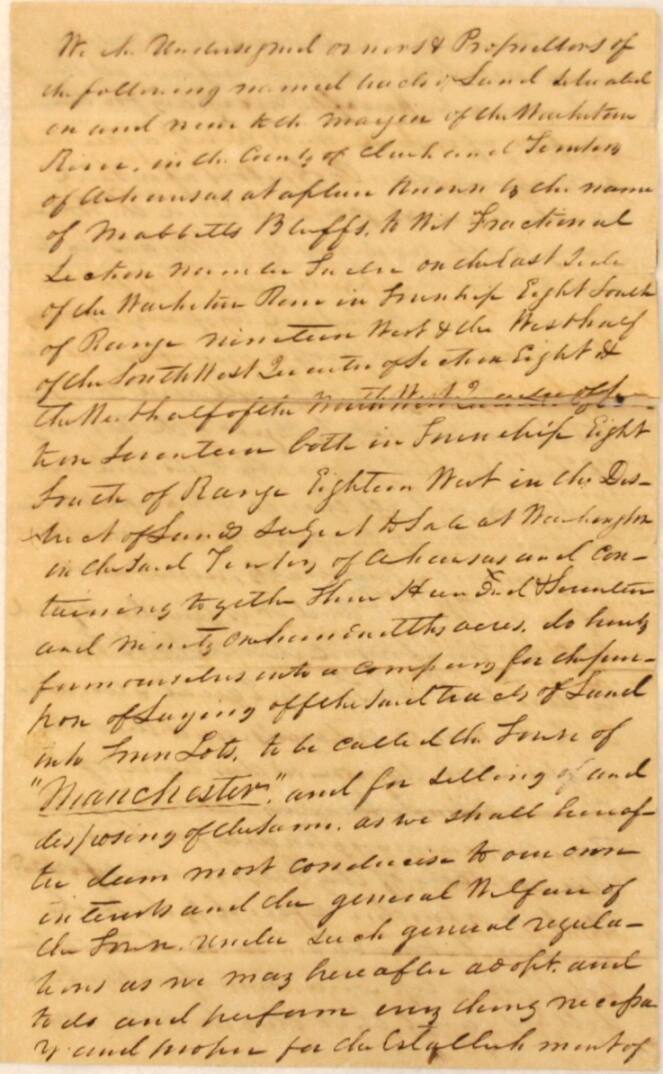 We the Undersigned owners & Proprietors of
the following named tracts of Land situated
on and near to the margin of the Wachetaw
River, in the County of Clark and Territory
of Arkansas at a place known by the name
of Mabbetts Bluffs, to Wit Fractional
Section number Twelve on the East Side
of the Wachetaw River in Township Eight South
of Range nineteen West & the West half
of the South West Quarter of Section Eight &
the West half of the North West Quarter of Sec-
tion Seventeen both in Township Eight
South of Range Eighteen West in the Dis-
trict of Lands Subject to Sale at Washington
in the said Territory of Arkansas and con-
taining together Three Hundred & Seventeen
and ninety one hundredths acres, do hereby
form ourselves into a company for the pur-
pose of Laying off the said tracts of Land
into Town Lots, to be called the Town of
"Manchester", and for selling of and
disposing of the same, as we shall hereaf-
ter deem most conducive to our own
interests and the general Welfare of
the Town, under such general regula-
tions as we may hereafter adopt, and
to do and perform every thing necessa
ry and proper for the Establishment of